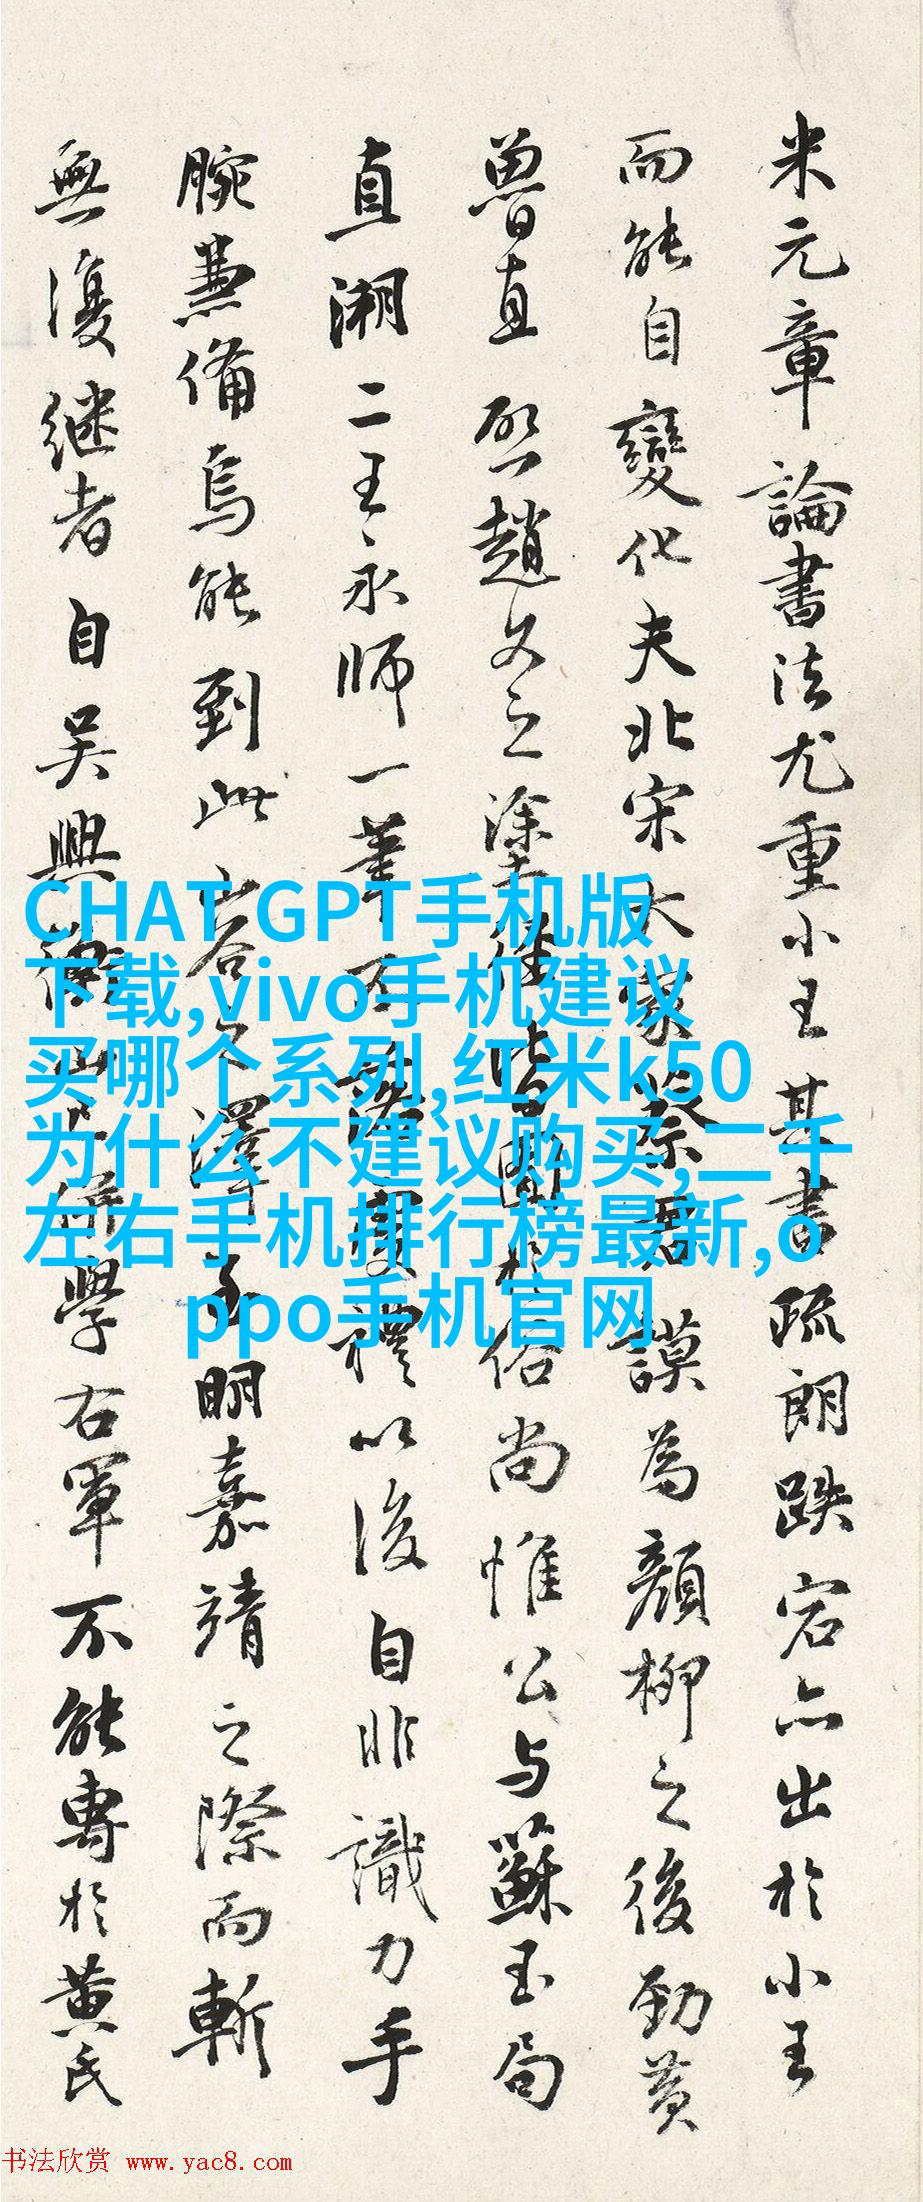 米元章論書法尤重小王其書疏朗跌宕亦出於小王
而能自變化夫北宋大家蔡君謨為顏柳之後勁黄
魯直啓趙文之塗徑皆囿於俗尚惟公与蘇玉局
直溯二王永師一筆不落虔禮以後自非識力手
腕兼備烏能到此澤至明嘉靖之際而斬
無復継者自吴興衡山學右軍不能專於黄氏
CHAT GPT手机版
下载,vivo手机建议
买哪个系列,红米k50
为什么不建议购买,二千
左右手机排行榜最新,o
ppo手机官网
书法欣赏 www.yac8.com